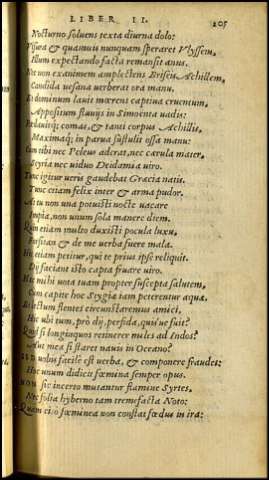 LIBER II. 207
Nocturno soluens texta diurna dolo:
Visura & quamuis nunquam speraret Vlyssem,
Illum expectando facta remansit anus.
Nec non exanimem amplectens Briseis Achillem,
Candida uesana uerberat ora manu.
Et dominum lauit mœrens captiua cruentum,
Appositum flauis in Simoenta uadis:
Fœdauitq; comas, & tanti corpus Achillis,
Maximaq; in parua sustulit ossa manu:
Cum tibi nec Peleus aderat, nec cærula mater,
Scyria nec uiduo Deidamia uiro.
Tunc igitur ueris gaudebat Græcia natis.
Tunc etiam felix inter & arma pudor.
At tu non una potuisti nocte uacare
Impia, non unum sola manere diem.
Quin etiam multo duxisti pocula luxu,
Forsitan & de me uerba fuere mala.
Hic etiam petitur, qui te prius ipse reliquit.
Dij faciant isto capta fruare uiro.
Hæc mihi uota tuam propter suscepta salutem,
Cum capite hoc Stygiæ iam peterentur aquæ.
Et lectum flentes circunstaremus amici,
Hic ubi tum, prò dij, perfida, quis'ue fuit?
Quid si longinquos retinerer miles ad Indos?
Aut mea si staret nauis in Oceano?
Sed uobis facilè est uerba, & componere fraudes:
Hoc unum didicit fœmina semper opus.
Non sic incerto mutantur flamine Syrtes,
Nec folia hyberno tam tremefacta Noto:
Quam cito fœminea non constat fœdus in ira: